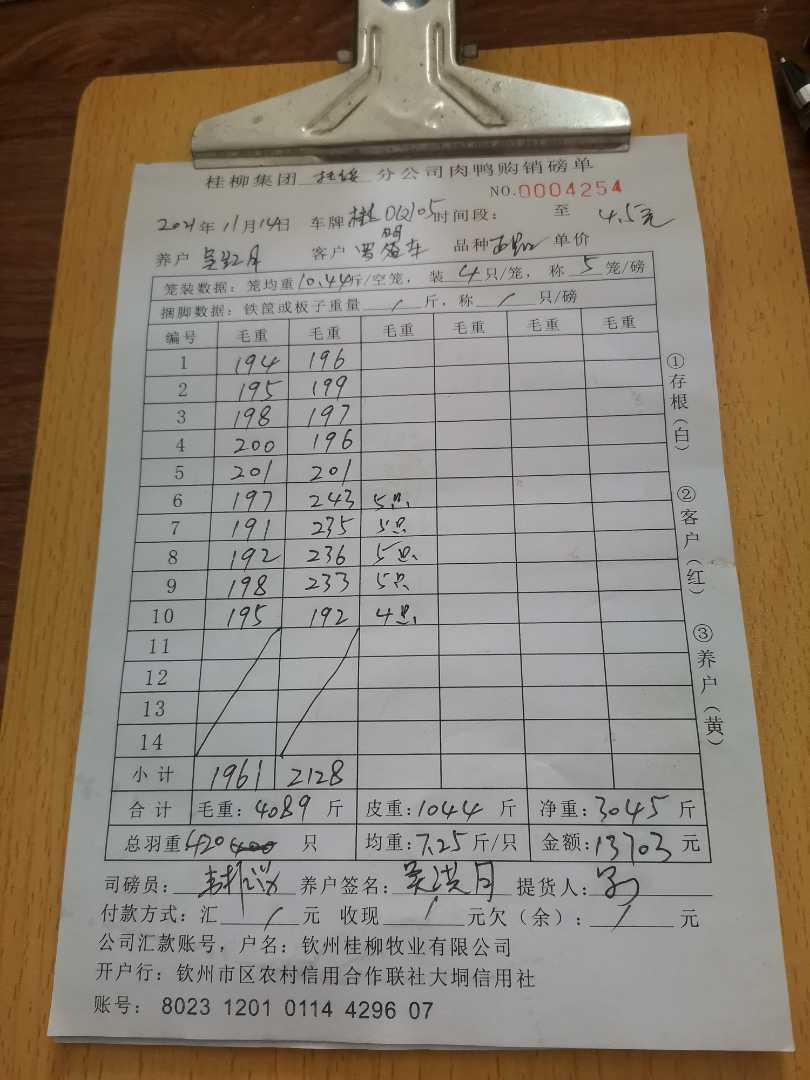 桂柳集团 桂绥 分公司肉鸭购销磅单
NO.0004254
2021年11月14日 车牌 05 时间段： 至 4.5元
养户 客户 明 品种 单价
笼装数据：笼均重10.44斤/空笼，装 4只/笼，称 5 笼/磅
捆脚数据：铁筐或板子重量 / 斤，称 / 只/磅
编号 毛重 毛重 毛重 毛重 毛重 毛重
1 194 196
2 195 199
3 198 197
4 200 196
5 201 201
6 197 243 5只
7 191 235 5只
8 192 236 5只
9 198 233 5只
10 195 192 4只
11
12
13
14
小计 1961 2128
合计 毛重：4089 斤 皮重：1044 斤 净重：3045 斤
总羽重420 只 均重：7.25斤/只 金额：13703元
①存根（白）
②客户（红）
③养户（黄）
司磅员： 养户签名：吴洪月 提货人：
付款方式：汇 / 元 收现 / 元欠（余）： / 元
公司汇款账号，户名：钦州桂柳牧业有限公司
开户行：钦州市区农村信用合作联社大垌信用社
账号： 8023 1201 0114 4296 07